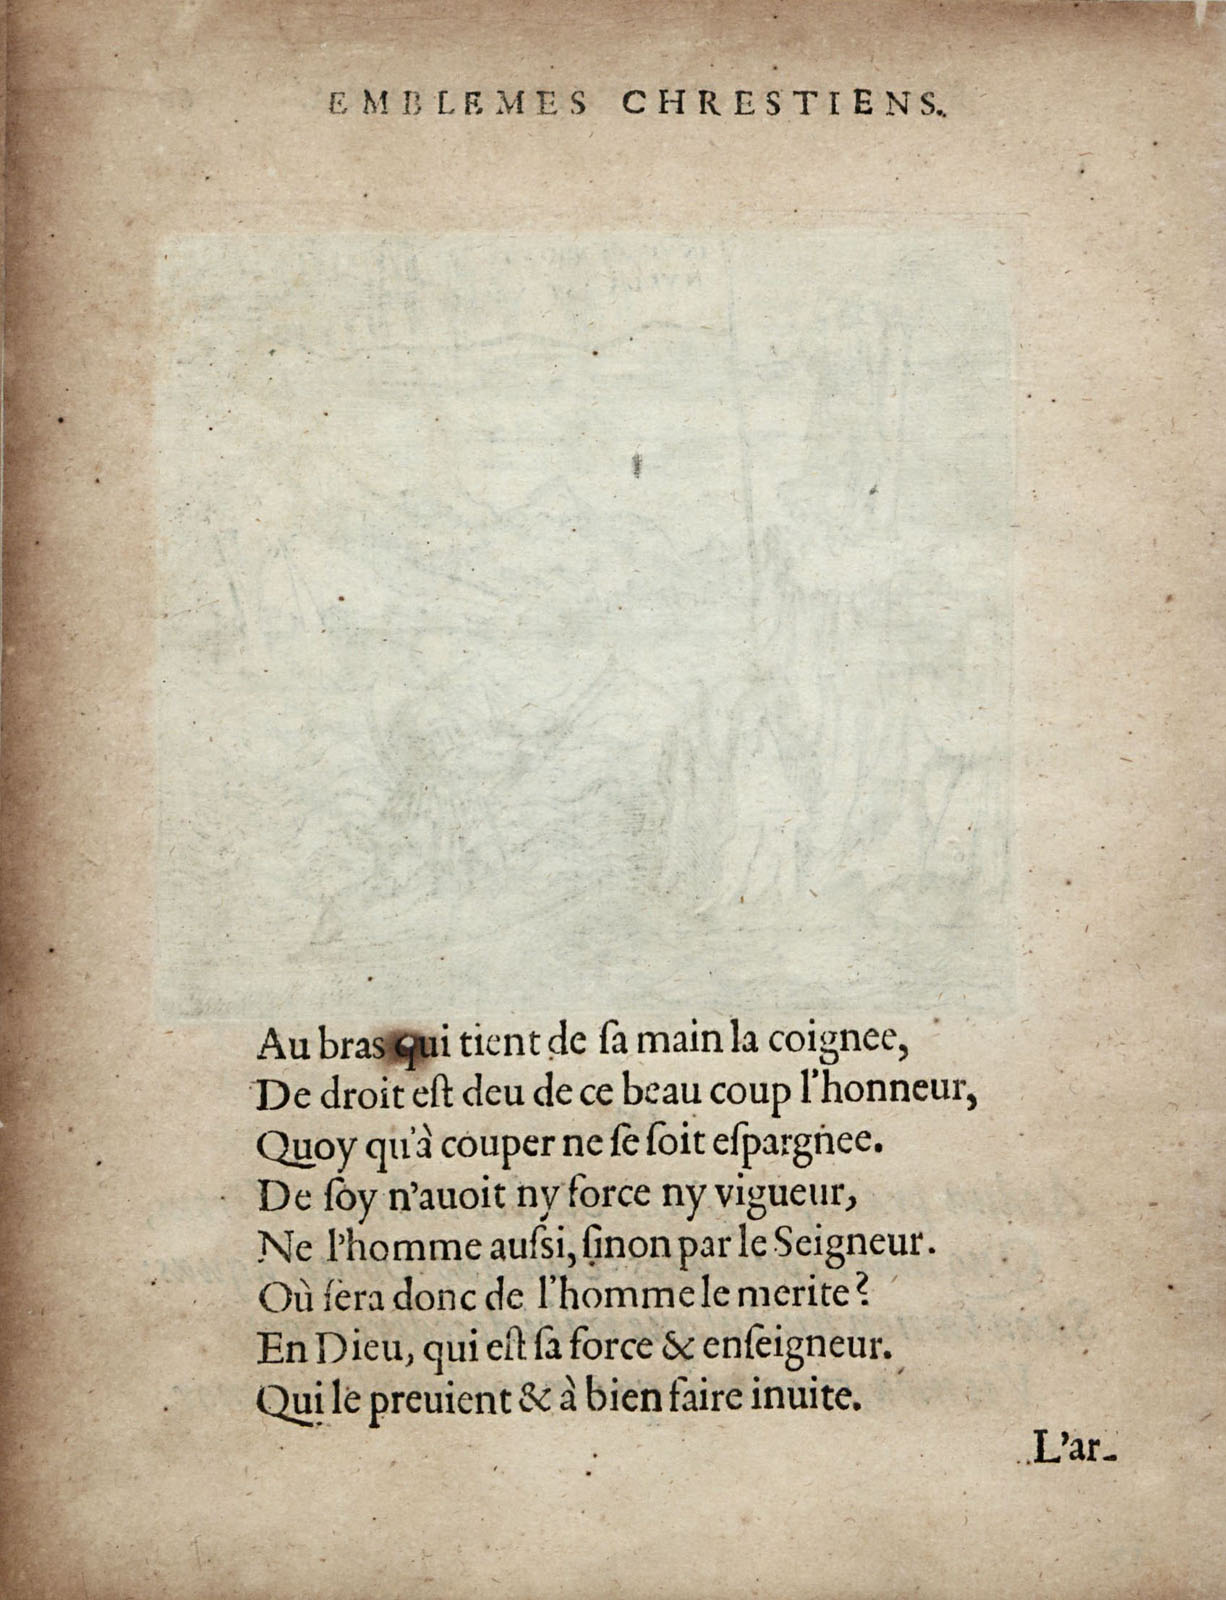 EMBLEMES CHRESTIENS.
Au bras qui tient de ſa main la coignee,
De droit eſt deu de ce beau coup l'honneur,
Quoy qu'à couper ne ſe ſoit eſpargnee.
De ſoy n'auoit ny force ny vigueur,
Ne l'homme auſsi, ſinon par le Seigneur.
Où ſera donc de l'homme le merite?
En Dieu, qui eſt ſa force & enſeigneur.
Qui le preuient & à bien faire inuite.
L'ar-